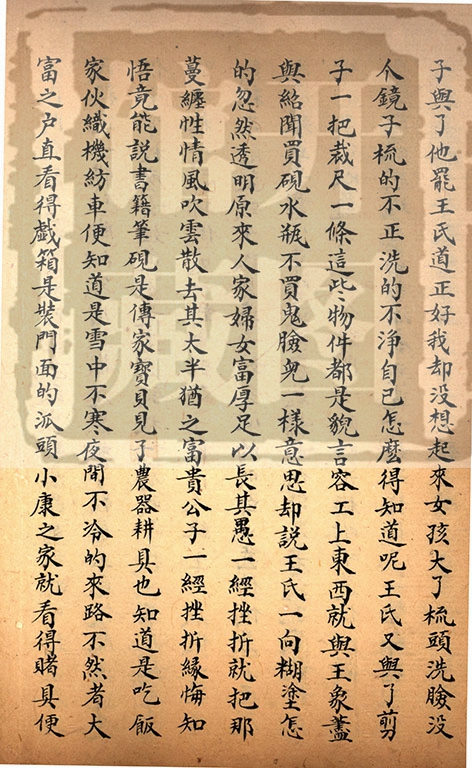 子與了他罷王氏道正好我却没想起來女孩大了梳頭洗臉没
亽鏡子梳的不正洗的不淨自己怎麼得知道呢王氏又與了剪
子一把裁尺一條這些物件都是貌言容工上東西就與王象藎
與紹聞買硯水瓶不買鬼臉兒一樣意思却説王氏一向糊塗怎
的忽然透明原來人家婦女富厚足以長其愚一經挫折就把那
蔓纏性情風吹雲散去其大半猶之富貴公子一經挫折緣悔知
悟竟能説書籍筆硯是傳家寶貝見了農器耕具也知道是吃飯
家伙織機紡車便知道是雪中不寒夜間不冷的來路不然者大
富之户直看得戯箱是裝門面的派頭小康之家就看得賭具便